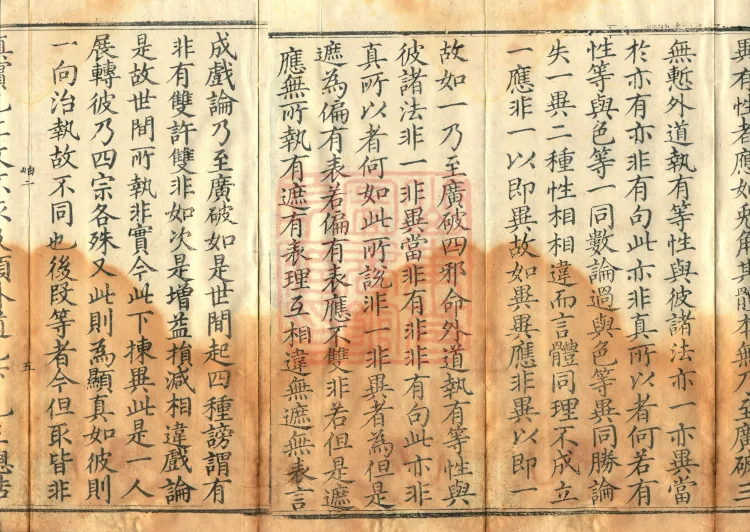 異有性者應如兔角其體本無乃至廣破三
無慙外道執有等性與彼諸法亦一亦異當
於亦有亦非有句此亦非真所以者何若有
性等與色等一同數論過與色等異同勝論
失一異二種性相相違而言體同理不成立
一應非一以即異故如異異應非異以即一
故如一乃至廣破四邪命外道執有等性與
彼諸法非一非異當非有非非有句此亦非
真所以者何如此所說非一非異者為但是
遮為偏有表若偏有表應不雙非若但是遮
應無所執有遮有表理互相違無遮無表言
成戲論乃至廣破如是世間起四種謗謂有
非有雙許雙非如次是增益損減相違戲論
是故世間所執非實今此下揀異此是一人
展轉彼乃四宗各殊又此則為顯真如彼則
一向治執故不同也後段等者今但取皆非
五